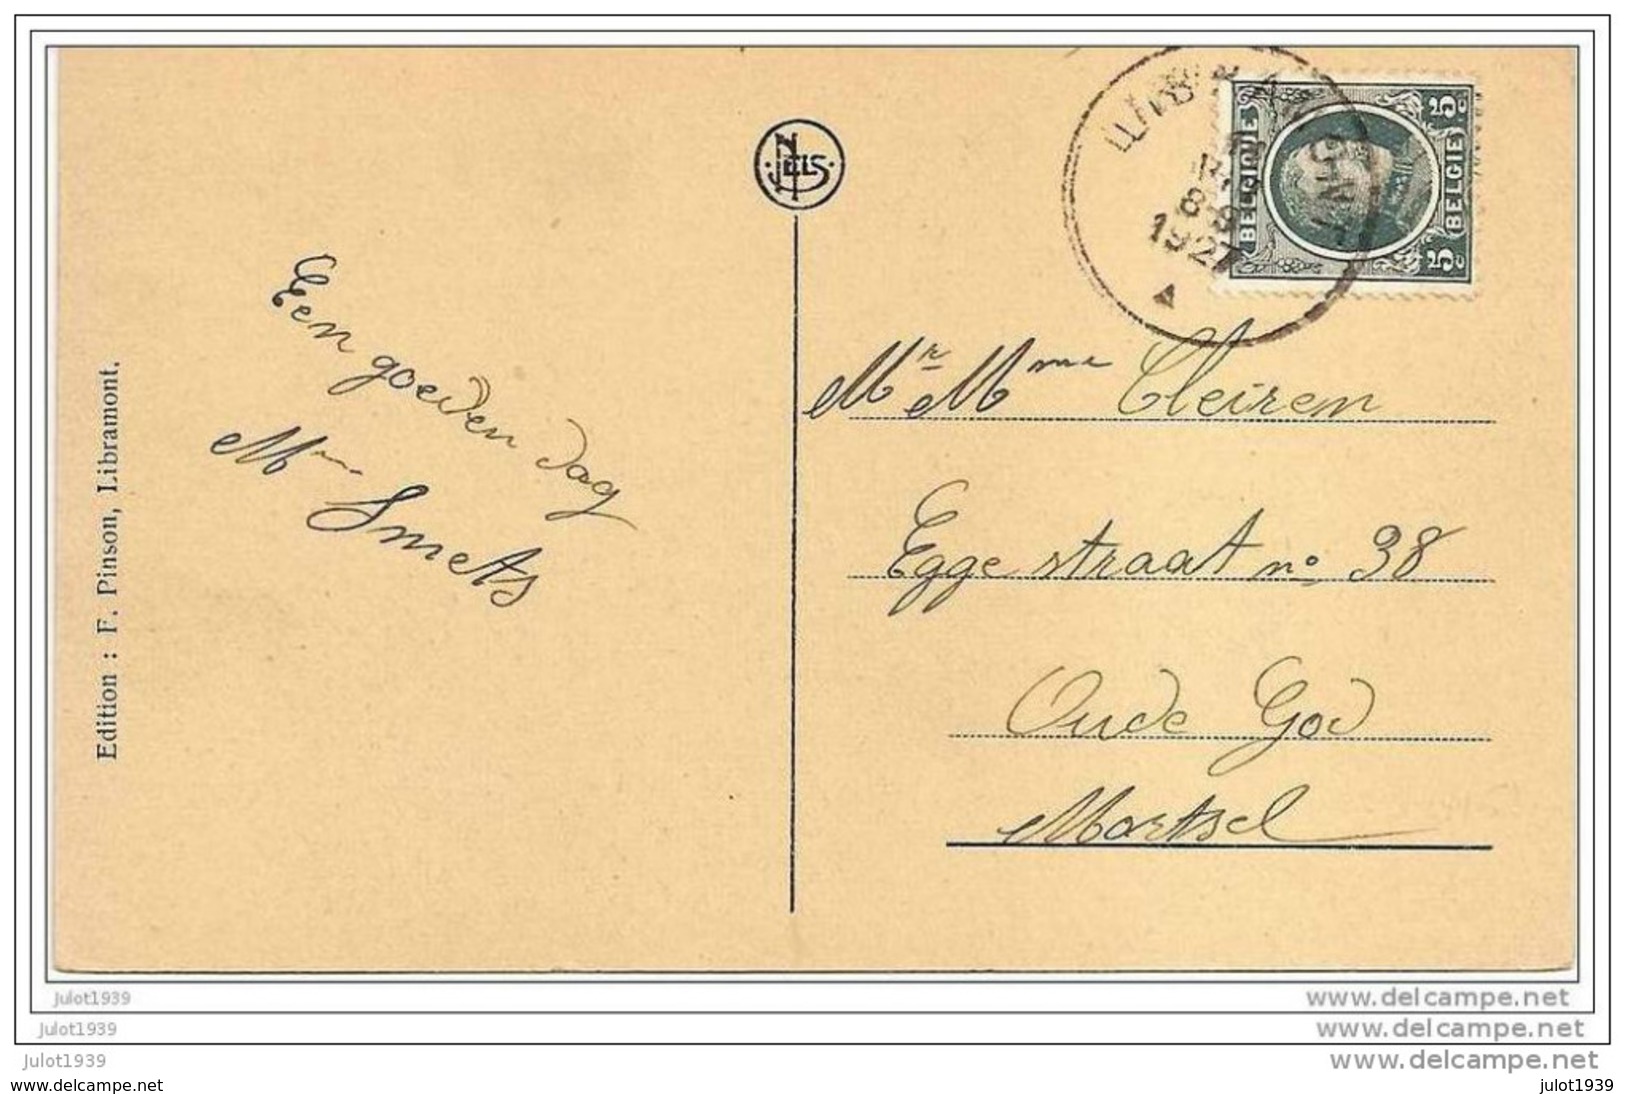 Een goeden dag
Mme Smets
Edition : F. Pinson, Libramont.
NELS
1927
BELGIQUE
BELGIE
5c
5c
Mr Mme Cleiren
Egge straat no 38
Oude God
Mortsel
Julot1939
Julot1939
Julot1939
www.delcampe.net
www.delcampe.net
www.delcampe.net
www.delcampe.net
julot1939